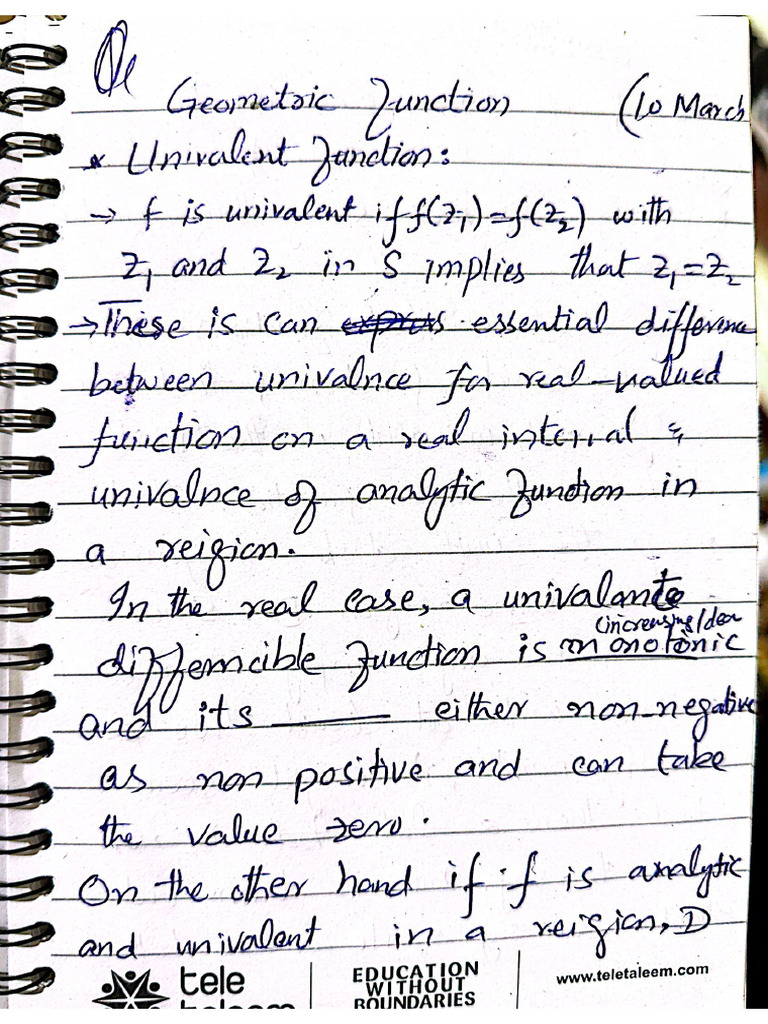 Geometric Function (10 March
* Univalent Function:
→ f is univalent if f(z₁)=f(z₂) with
z₁ and z₂ in S implies that z₁=z₂
→ These is can essential difference
between univalnce for real-valued
function on a real interval &
univalnce of analytic function in
a reigion.
In the real case, a univalent
(increasing/dec
differncible function is monotonic
and its ______ either non-negative
as non positive and can take
the value zero.
On the other hand if f is analytic
and univalent in a reigion, D
tele
taleem
EDUCATION
WITHOUT
BOUNDARIES
www.teletaleem.com